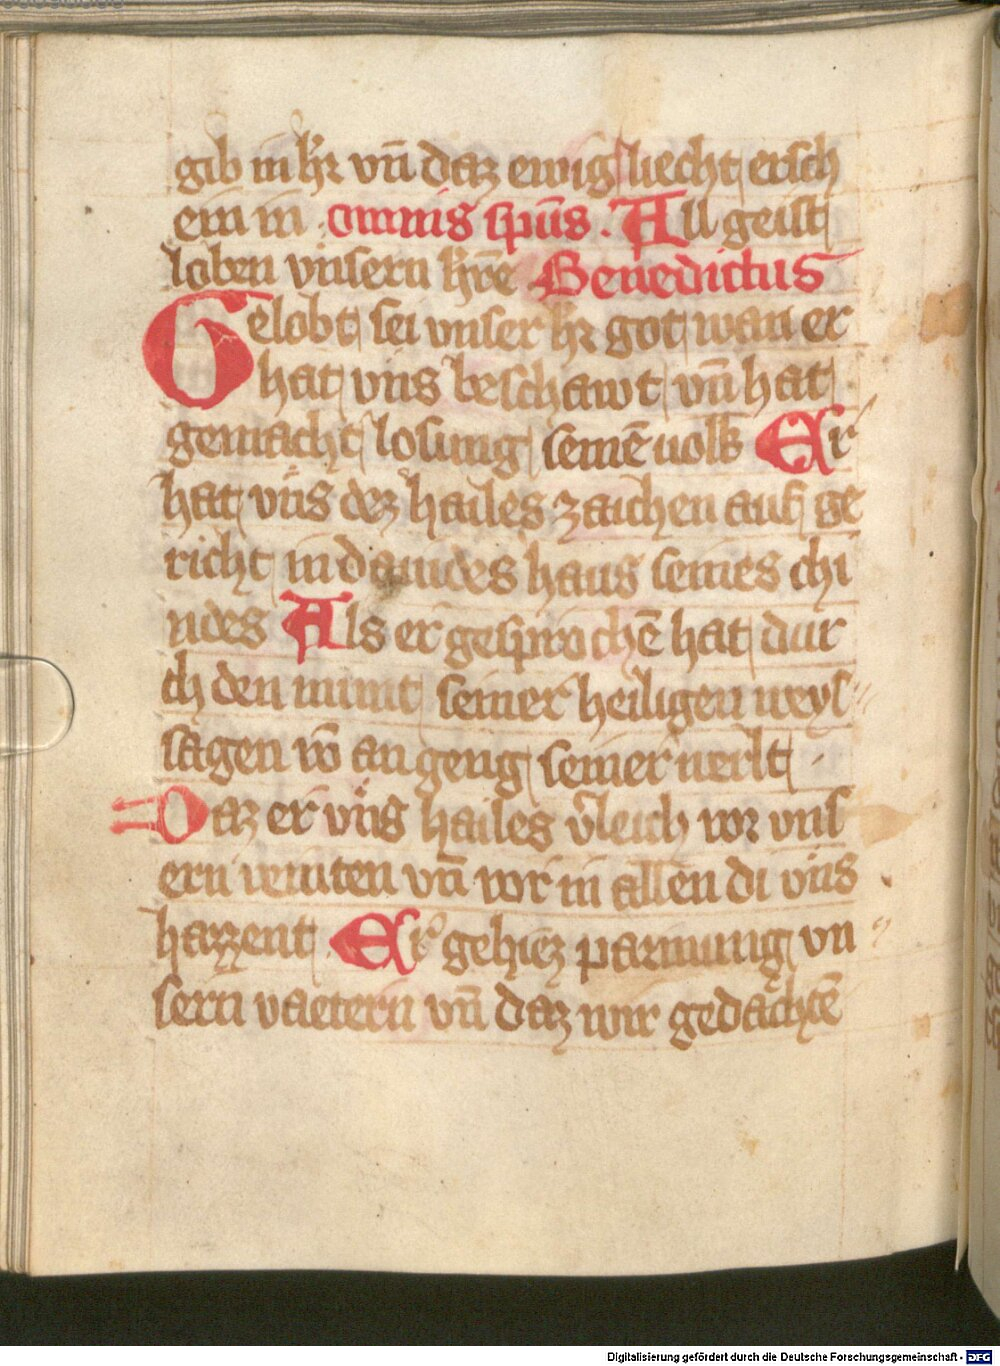 gib in hr̄ vn̄ daz ewig liecht ersch
ein in omnis sp̄us. All geist
loben vnsern hr̄re Benedictus
Gelobt sei vnser hr̄ got wan er
hat vns beschawt vn̄ hat
gemacht losung seinē uolk Er
hat vns dez hailes zaichen auf ge
richt in dauides haus seines chi
ndes Als er gesprochē hat dur
ch den munt seiner heiligen weys
sagen vō angeng seiner werlt
Daz er vns hailes v̄leich vor vns
ern veinten vn̄ vor in allen di vns
hazzent Er gehiez parmung vn
sern vaetern vn̄ daz wir gedachtē
Digitalisierung gefördert durch die Deutsche Forschungsgemeinschaft - DFG